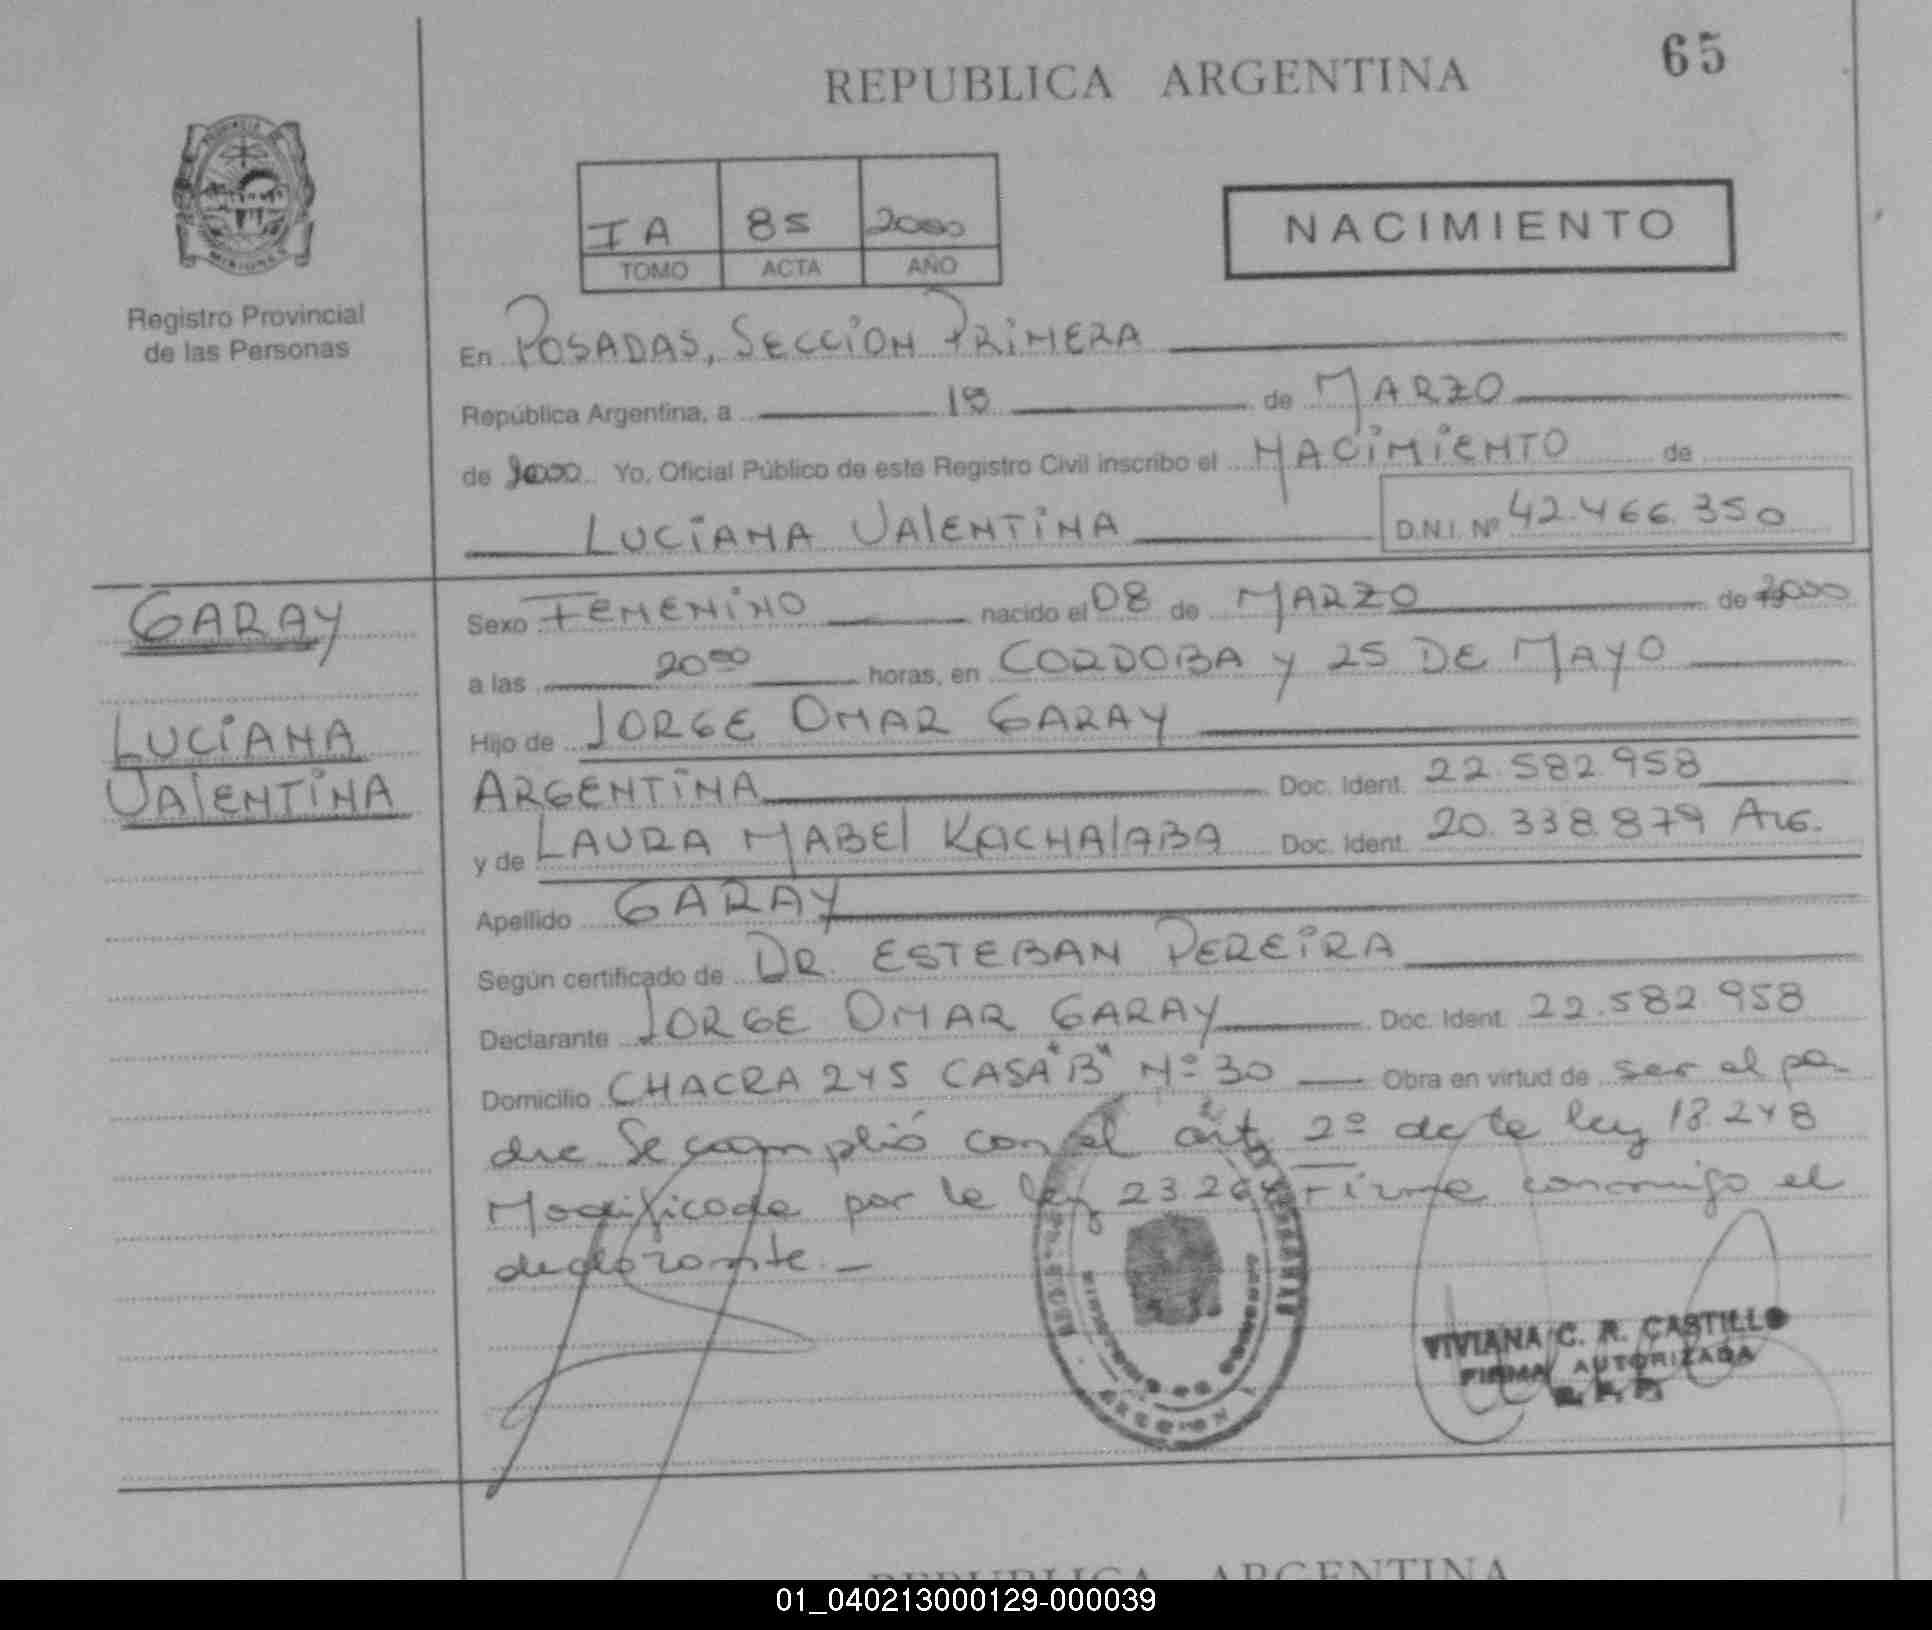 65
REPUBLICA ARGENTINA
PROVINCIA DE
MISIONES
Registro Provincial
de las Personas
IA 85 2000
TOMO ACTA AÑO
NACIMIENTO
En POSADAS, SECCION PRIMERA
República Argentina, a de MARZO
de 2000 Yo, Oficial Público de este Registro Civil inscribo el NACIMIENTO de
LUCIANA VALENTINA D.N.I. Nº 42.466.350
GARAY
LUCIANA
VALENTINA
Sexo FEMENINO nacido el 08 de MARZO de 2000
a las 20 00 horas, en CORDOBA y 25 DE MAYO
Hijo de JORGE OMAR GARAY
ARGENTINA Doc. Ident. 22.582.958
y de LAURA MABEL KACHALABA Doc. Ident. 20.338.879 ARG.
Apellido GARAY
Según certificado de DR. ESTEBAN PEREIRA
Declarante JORGE OMAR GARAY Doc. Ident. 22.582.958
Domicilio CHACRA 245 CASA "B" Nº 30 Obra en virtud de ser el pa-
dre Se cumplió con el art. 2º de la ley 18.248
Modificada por la ley 23.264 Firma conmigo el
declarante.-
VIVIANA C. R. CASTILLO
FIRMA AUTORIZADA
REPUBLICA ARGENTINA
01_040213000129-000039